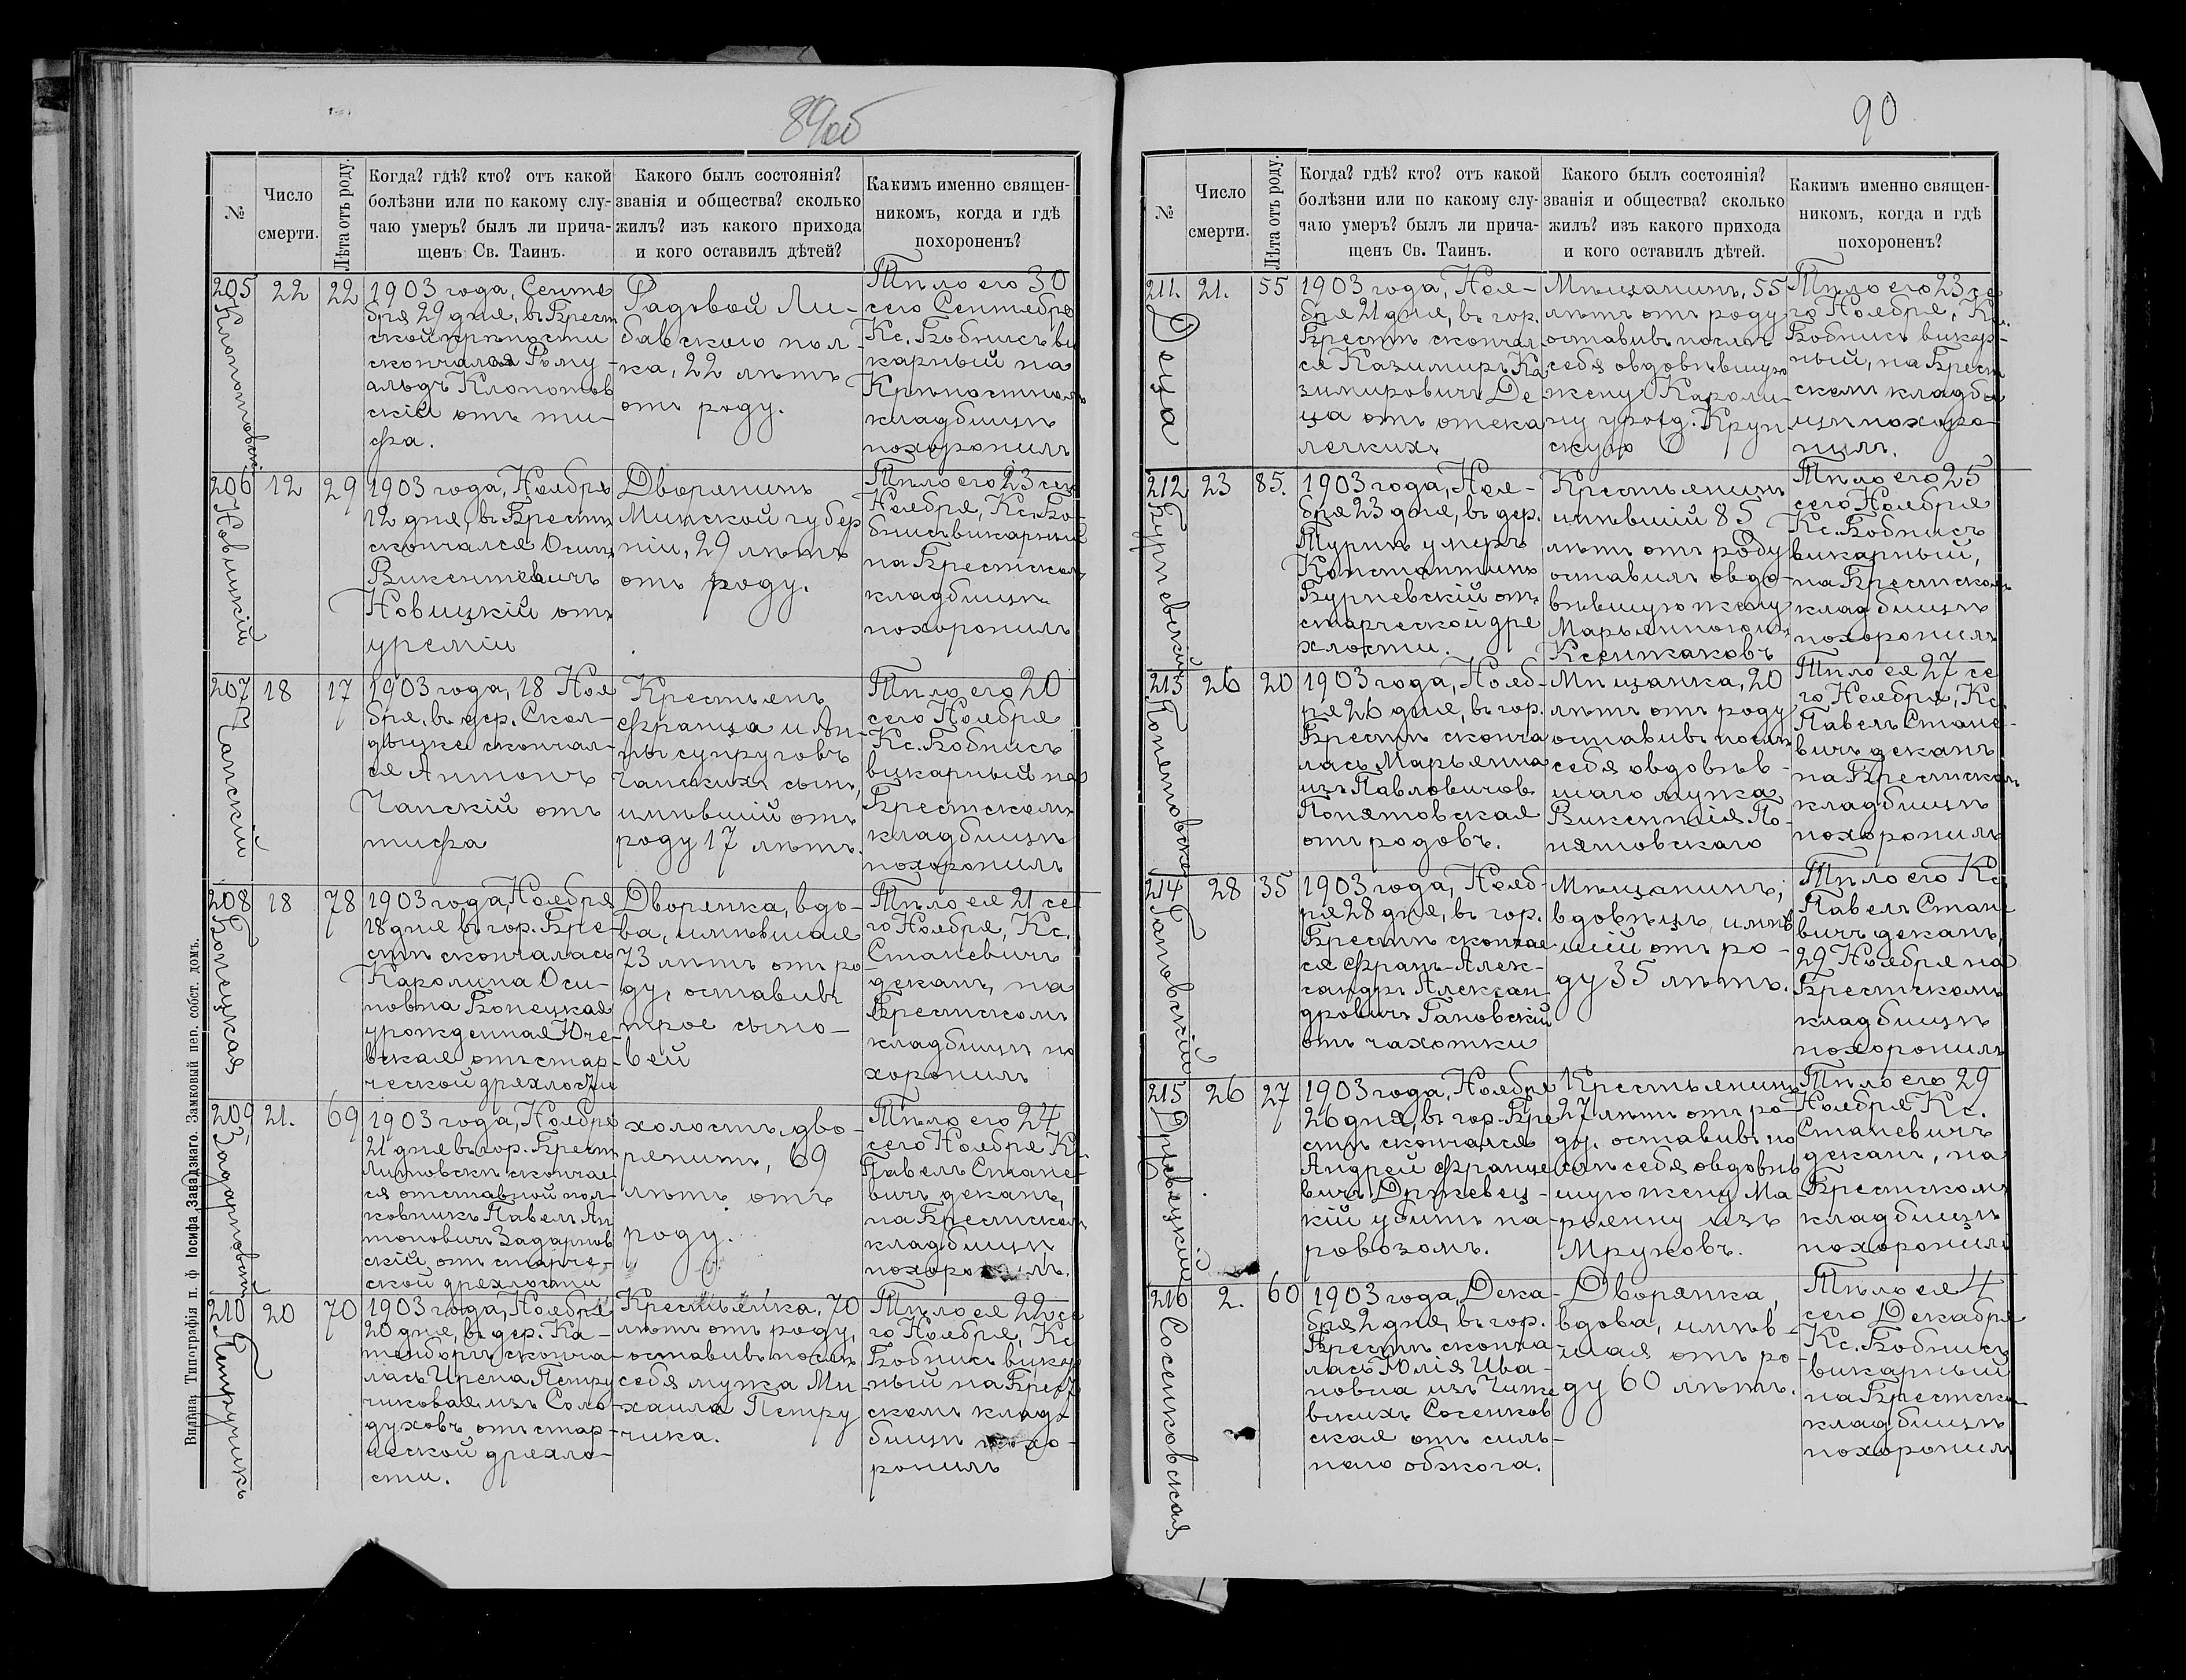 89об
№
Число
смерти.
Лѣта отъ роду.
Когда? гдѣ? кто? отъ какой
болѣзни или по какому слу-
чаю умеръ? былъ ли прича-
щенъ Св. Таинъ.
Какого былъ состоянія?
званія и общества? сколько
жилъ? изъ какого прихода
и кого оставилъ дѣтей?
Какимъ именно священ-
никомъ, когда и гдѣ
похороненъ?
205
Клопотовскій
22
22
1903 года, Сентя
бря 29 дня, въ Брест
ской крѣпости
скончался Рому
альдъ Клопотов
скій отъ ти-
фа.
Рядовой Ли-
бавского пол-
ка, 22 лѣтъ
отъ роду.
Тѣло его 30
сего Сентября
Кс. Бобнисъ ви
карный на
Крѣпостномъ
кладбищѣ
похоронилъ
206
Новицкій
12
29
1903 года, Ноября
12 дня, въ Брестѣ
скончался Осипъ
Викентевичъ
Новицкій отъ
уреміи
Дворянинъ
Минской губер
ніи, 29 лѣтъ
отъ роду.
Тѣло его 23 сего
Ноября, Кс. Бо-
бнисъ викарный
на Брестскомъ
кладбищѣ
похоронилъ
207
Чапскій
18
17
1903 года, 18 Ноя
бря, въ дер. Скол-
дычке скончал-
ся Антонъ
Чапскій отъ
тифа
Крестьянъ
Франца и Ан-
ны супруговъ
Чапскихъ сынъ,
имѣвшій отъ
роду 17 лѣтъ.
Тѣло его 20
сего Ноября
Кс. Бобнисъ
викарный на
Брестскомъ
кладбищѣ
похоронилъ
208
Бонецкая
18
78
1903 года, Ноября
18 дня въ гор. Бре-
стѣ скончалась
Каролина Оси-
повна Бонецкая
урожденная Юче-
вская отъ стар-
ческой дряхлости
Дворянка, вдо-
ва, имѣвшая
73 лѣтъ отъ ро
ду, оставивъ
трое сыно-
вей
Тѣло ея 21 се
го Ноября, Кс.
Станевичъ
деканъ, на
Брестскомъ
кладбищѣ по
хоронилъ
209
Задарновскій
21.
69
1903 года, Ноября
21 дня въ гор. Брест
Литовскѣ скончал
ся отставной пол-
ковникъ Павелъ Ан
тоновичъ Задарнов
скій отъ старче-
ской дряхлости
холостъ, дво-
рянинъ, 69
лѣтъ отъ
роду.
Тѣло его 24
сего Ноября Кс.
Павелъ Стане-
вичъ деканъ,
на Брестскомъ
кладбищѣ
похоронилъ.
210
Петручикъ
20
70
1903 года, Ноября
20 дня, въ дер. Ка-
тенборгъ сконча-
лась Ирена Петру
чиковая изъ Соло
духовъ, отъ стар-
ческой дряхло-
сти.
Крестьянка, 70
лѣтъ отъ роду,
оставивъ послѣ
себя мужа Ми-
хаила Петру
чика.
Тѣло ея 22 се
го Ноября, Кс.
Бобнисъ викар
ный на Брест
скомъ клад-
бищѣ похо-
ронилъ
Вильна; Типографія п. ф Іосифа Завадзкаго. Замковый пер. собст. домъ.
90
№
Число
смерти.
Лѣта отъ роду.
Когда? гдѣ? кто? отъ какой
болѣзни или по какому слу-
чаю умеръ? былъ ли прича-
щенъ Св. Таинъ.
Какого былъ состоянія?
званія и общества? сколько
жилъ? изъ какого прихода
и кого оставилъ дѣтей.
Какимъ именно священ-
никомъ, когда и гдѣ
похороненъ?
211.
Деца
21.
55
1903 года, Ноя-
бря 21 дня, въ гор.
Брестѣ скончал
ся Казимиръ Ка
зимировичъ Де
ца отъ отека
легкихъ
Мѣщанинъ, 55
лѣтъ отъ роду
оставивъ послѣ
себя овдовѣвшую
жену Кароли-
ну урожд. Круп
скую
Тѣло его 23 се
го Ноября, Кс.
Бобнисъ викар-
ный, на Брест
скомъ кладби
щѣ похоро-
нилъ.
212
Бурневскій
23
85.
1903 года, Ноя-
бря 23 дня, въ дер.
Туринъ умеръ
Константинъ
Бурневскій отъ
старческой дря
хлости.
Крестьянинъ
имѣвшій 85
лѣтъ отъ роду
оставилъ овдо-
вѣвшую жену
Марьянною изъ
Ксенжаковъ
Тѣло его 25
сего Ноября
Кс. Бобнисъ
викарный,
на Брестскомъ
кладбищѣ
похоронилъ
213
Понятовская
26
20
1903 года, Нояб-
ря 26 дня, въ гор.
Брестѣ сконча
лась Марьянна
изъ Павловичов
Понятовская
отъ родовъ.
Мѣщанка, 20
лѣтъ отъ роду
оставивъ послѣ
себя овдовѣв-
шаго мужа
Викентія По-
нятовскаго
Тѣло ея 27 се
го Ноября, Кс.
Павелъ Стане-
вичъ деканъ
на Брестскомъ
кладбищѣ
похоронилъ
214
Гановскій
28
35
1903 года, Нояб-
ря 28 дня, въ гор.
Брестѣ скончал
ся Францъ-Алек-
сандръ Алексан-
дровичъ Гановскій
отъ чахотки
Мѣщанинъ,
вдовецъ, имѣв
шій отъ ро-
ду 35 лѣтъ.
Тѣло его Кс.
Павелъ Стане
вичъ деканъ,
29 Ноября на
Брестскомъ
кладбищѣ
похоронилъ
215
Држевецкій
26
27
1903 года, Ноября
26 дня, въ гор. Бре
стѣ скончался
Андрей Франце
вичъ Држевец-
кій убитъ па-
ровозомъ.
Крестьянинъ
27 лѣтъ отъ ро-
ду, оставивъ по
слѣ себя овдовѣв
шую жену Ма
рьянну изъ
Мруковъ.
Тѣло его 29
Ноября Кс.
Станевичъ
деканъ, на
Брестскомъ
кладбищѣ
похоронилъ
216
Сосенковская
2.
60
1903 года, Дека-
бря 2 дня, въ гор.
Брестѣ сконча
лась Юлія Ива-
новна изъ Чиже
вскихъ Сосенков
ская отъ силь-
наго обжога.
Дворянка,
вдова, имѣв-
шая отъ ро-
ду 60 лѣтъ.
Тѣло ея 4
сего Декабря
Кс. Бобнисъ
викарный
на Брестском
кладбищѣ
похоронилъ